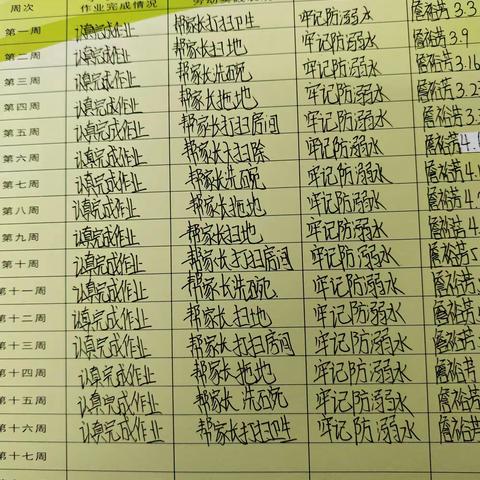 周次 作业完成情况
第一周 认真完成作业 帮家长打扫卫生 牢记防溺水 詹裕芳 3.3
第二周 认真完成作业 帮家长扫地 牢记防溺水 詹裕芳 3.9
第三周 认真完成作业 帮家长洗碗 牢记防溺水 詹裕芳 3.16
第四周 认真完成作业 帮家长拖地 牢记防溺水 詹裕芳 3.2
第五周 认真完成作业 帮家长打扫房间 牢记防溺水 詹裕芳 3.
第六周 认真完成作业 帮家长大扫除 牢记防溺水 詹裕芳 4.
第七周 认真完成作业 帮家长洗碗 牢记防溺水 詹裕芳 4.
第八周 认真完成作业 帮家长拖地 牢记防溺水 詹裕芳 4.
第九周 认真完成作业 帮家长扫地 牢记防溺水 詹裕芳 4.
第十周 认真完成作业 帮家长打扫房间 牢记防溺水 詹裕芳
第十一周 认真完成作业 帮家长洗碗 牢记防溺水 詹裕芳
第十二周 认真完成作业 帮家长扫地 牢记防溺水 詹裕芳
第十三周 认真完成作业 帮家长打扫房间 牢记防溺水 詹裕芳
第十四周 认真完成作业 帮家长拖地 牢记防溺水 詹裕芳
第十五周 认真完成作业 帮家长洗碗 牢记防溺水 詹裕芳
第十六周 认真完成作业 帮家长打扫卫生 牢记防溺水 詹裕芳
第十七周